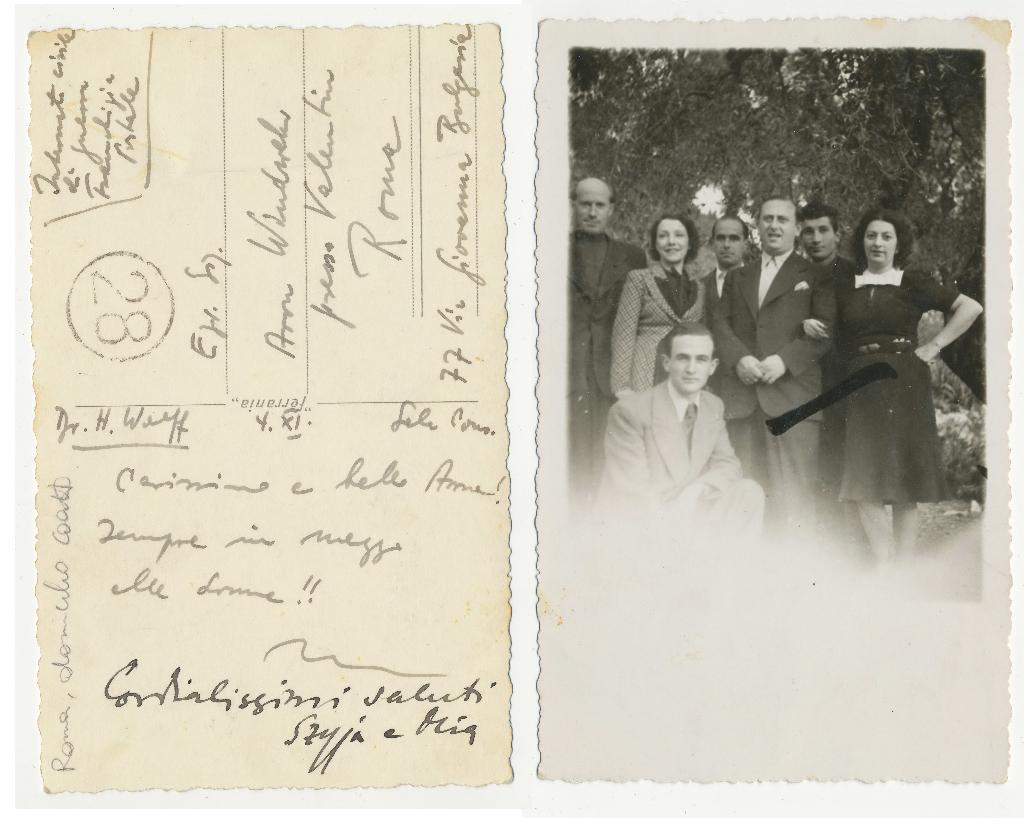 Internati civili
di guerra
Franchigia
Postale
28
Egr. Sig.
presso Valentini
Roma
77 Via Giovanna Bulgaria
"Ferrania"
Dr. H. Wolff
4. XI.
Carissimo e bello
sempre in mezzo
alle donne!!
Cordialissimi saluti
Szyja e Mia
Roma, domicilio coatto